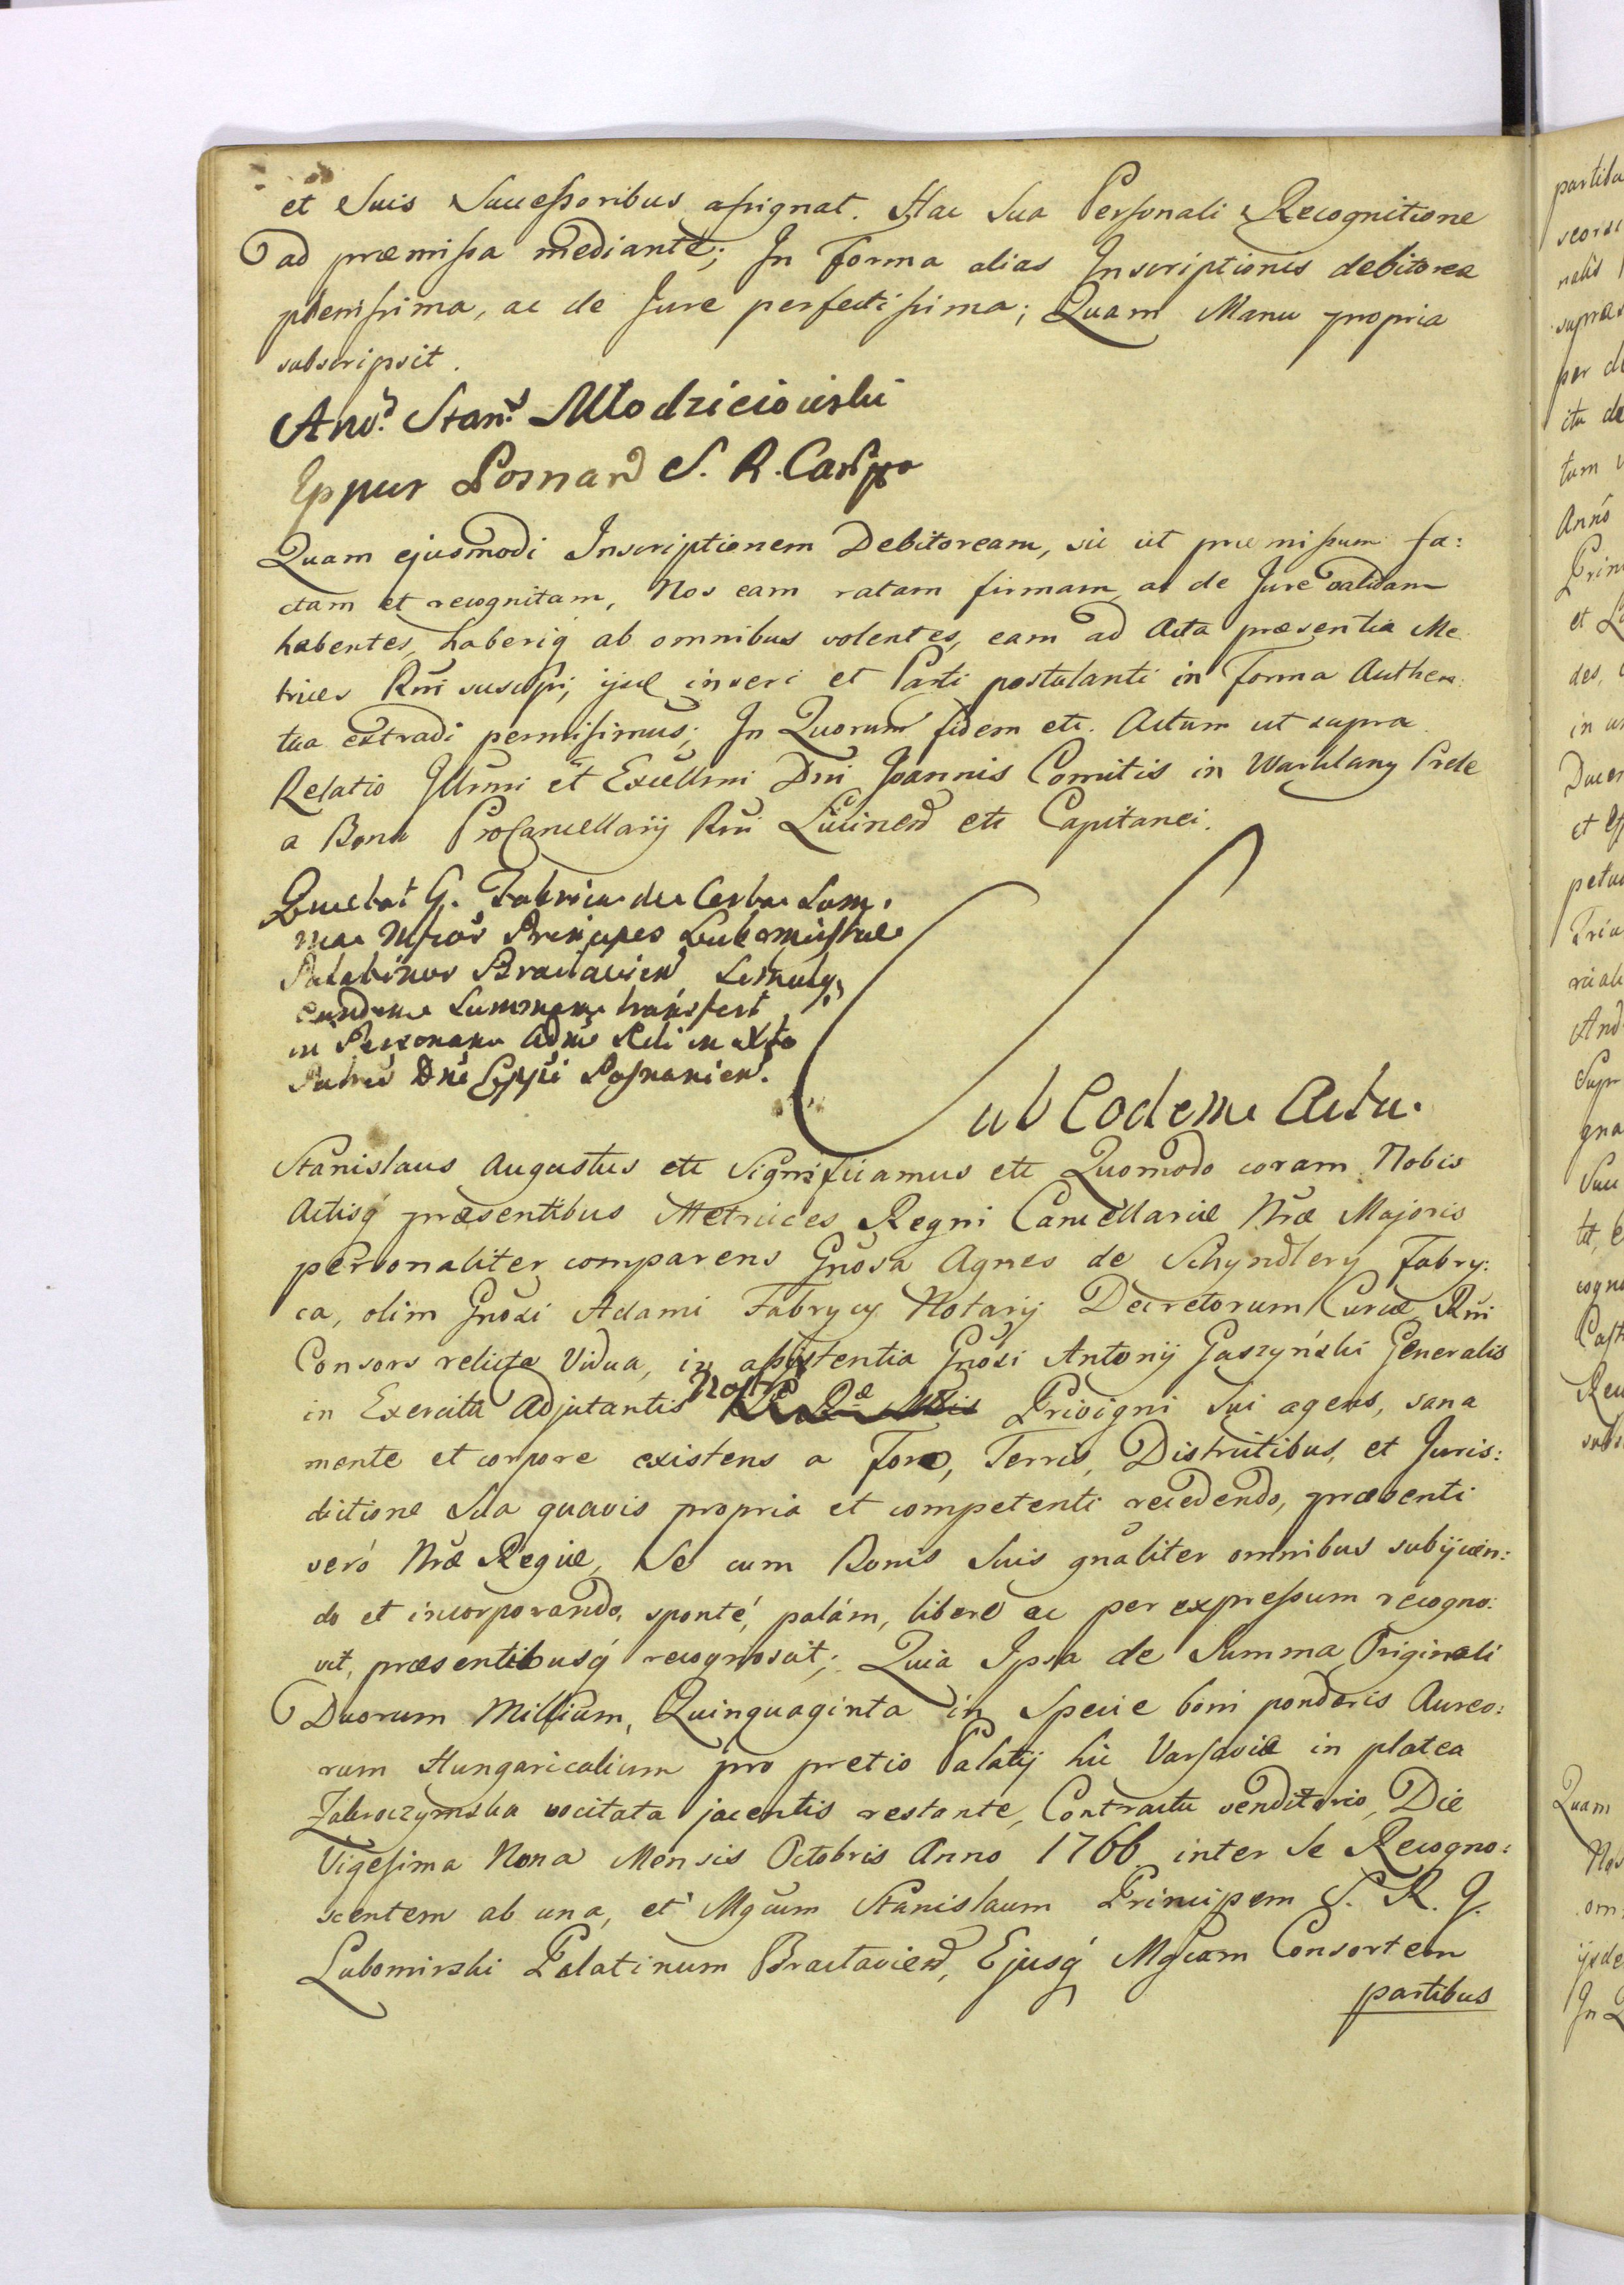 et Suis Successoribus assignat. Hac Sua Personali Recognitione
ad præmissa mediante; In Forma alias Inscriptionis debitorea
plenissima, ac de Jure perfectissima; Quam Manu propria
subscripsit.
And. Stan. Młodzieiowski
Eppus Posnan S. R.
Quam ejusmodi Inscriptionem Debitoream, sic ut præmissum fa:
ctam et recognitam, Nos eam ratam firmam, ac de Jure validam
habentes, haberiq ab omnibus volentes, eam ad Acta præsentia Me
trices Rni suscipi, ijsq inseri et Parti postulanti in Forma Authen
tica extradi permisimus; In Quorum fidem etc. Actum ut supra
Relatio Illmi et Excellmi Dni Joannis Comitis in Warklany
a Borch ProCancellarij Rni Lucinen etc Capitanei.
G. Fabricia de Certa Sum
ma Principes Lubomirskie
Palatinos Braclavien
eandem Summam transfert
in Personam Rdi in Xto
Patris Dni Eppi Posnanien.
Sub Eodem Actu.
Stanislaus Augustus etc Significamus etc Quomodo coram Nobis
Actisq præsentibus Metrices Regni Cancellariæ Nræ Majoris
personaliter comparens Gnosa Agnes de Schyndlery Fabry:
ca, olim Gnosi Adami Fabrycy Notarij Decretorum Curiæ Rni
Consors relicta Vidua, in assistentia Gnosi Antonij Gaszyński Generalis
in Exercitu Adjutantis Privigni Sui agens, sana
mente et corpore existens a Foro, Terris, Districtibus, et Juris:
dictione Sua quavis propria et competenti recedendo, præsenti
veró Nræ Regiæ, Se cum Bonis Suis gnaliter omnibus subijcien:
do et incorporando, sponté, palám, liberé ac per expressum recogno:
vit, præsentibusq recognoscit; Quia Ipsa de Summa Originali
Duorum Millium, Quinquaginta in Specie boni ponderis Aureo:
rum Hungaricalium pro pretio Palatij hic Varsaviæ in platea
Zakroczymska vocitata jacentis restante, Contractu venditorio, Die
Vigesima Nona Mensis Octobris Anno 1766 inter Se Recogno:
scentem ab una, et Mgcum Stanislaum Principem S. R. I.
Lubomirski Palatinum Braclavien, Ejusq Mgcam Consortem
partibus